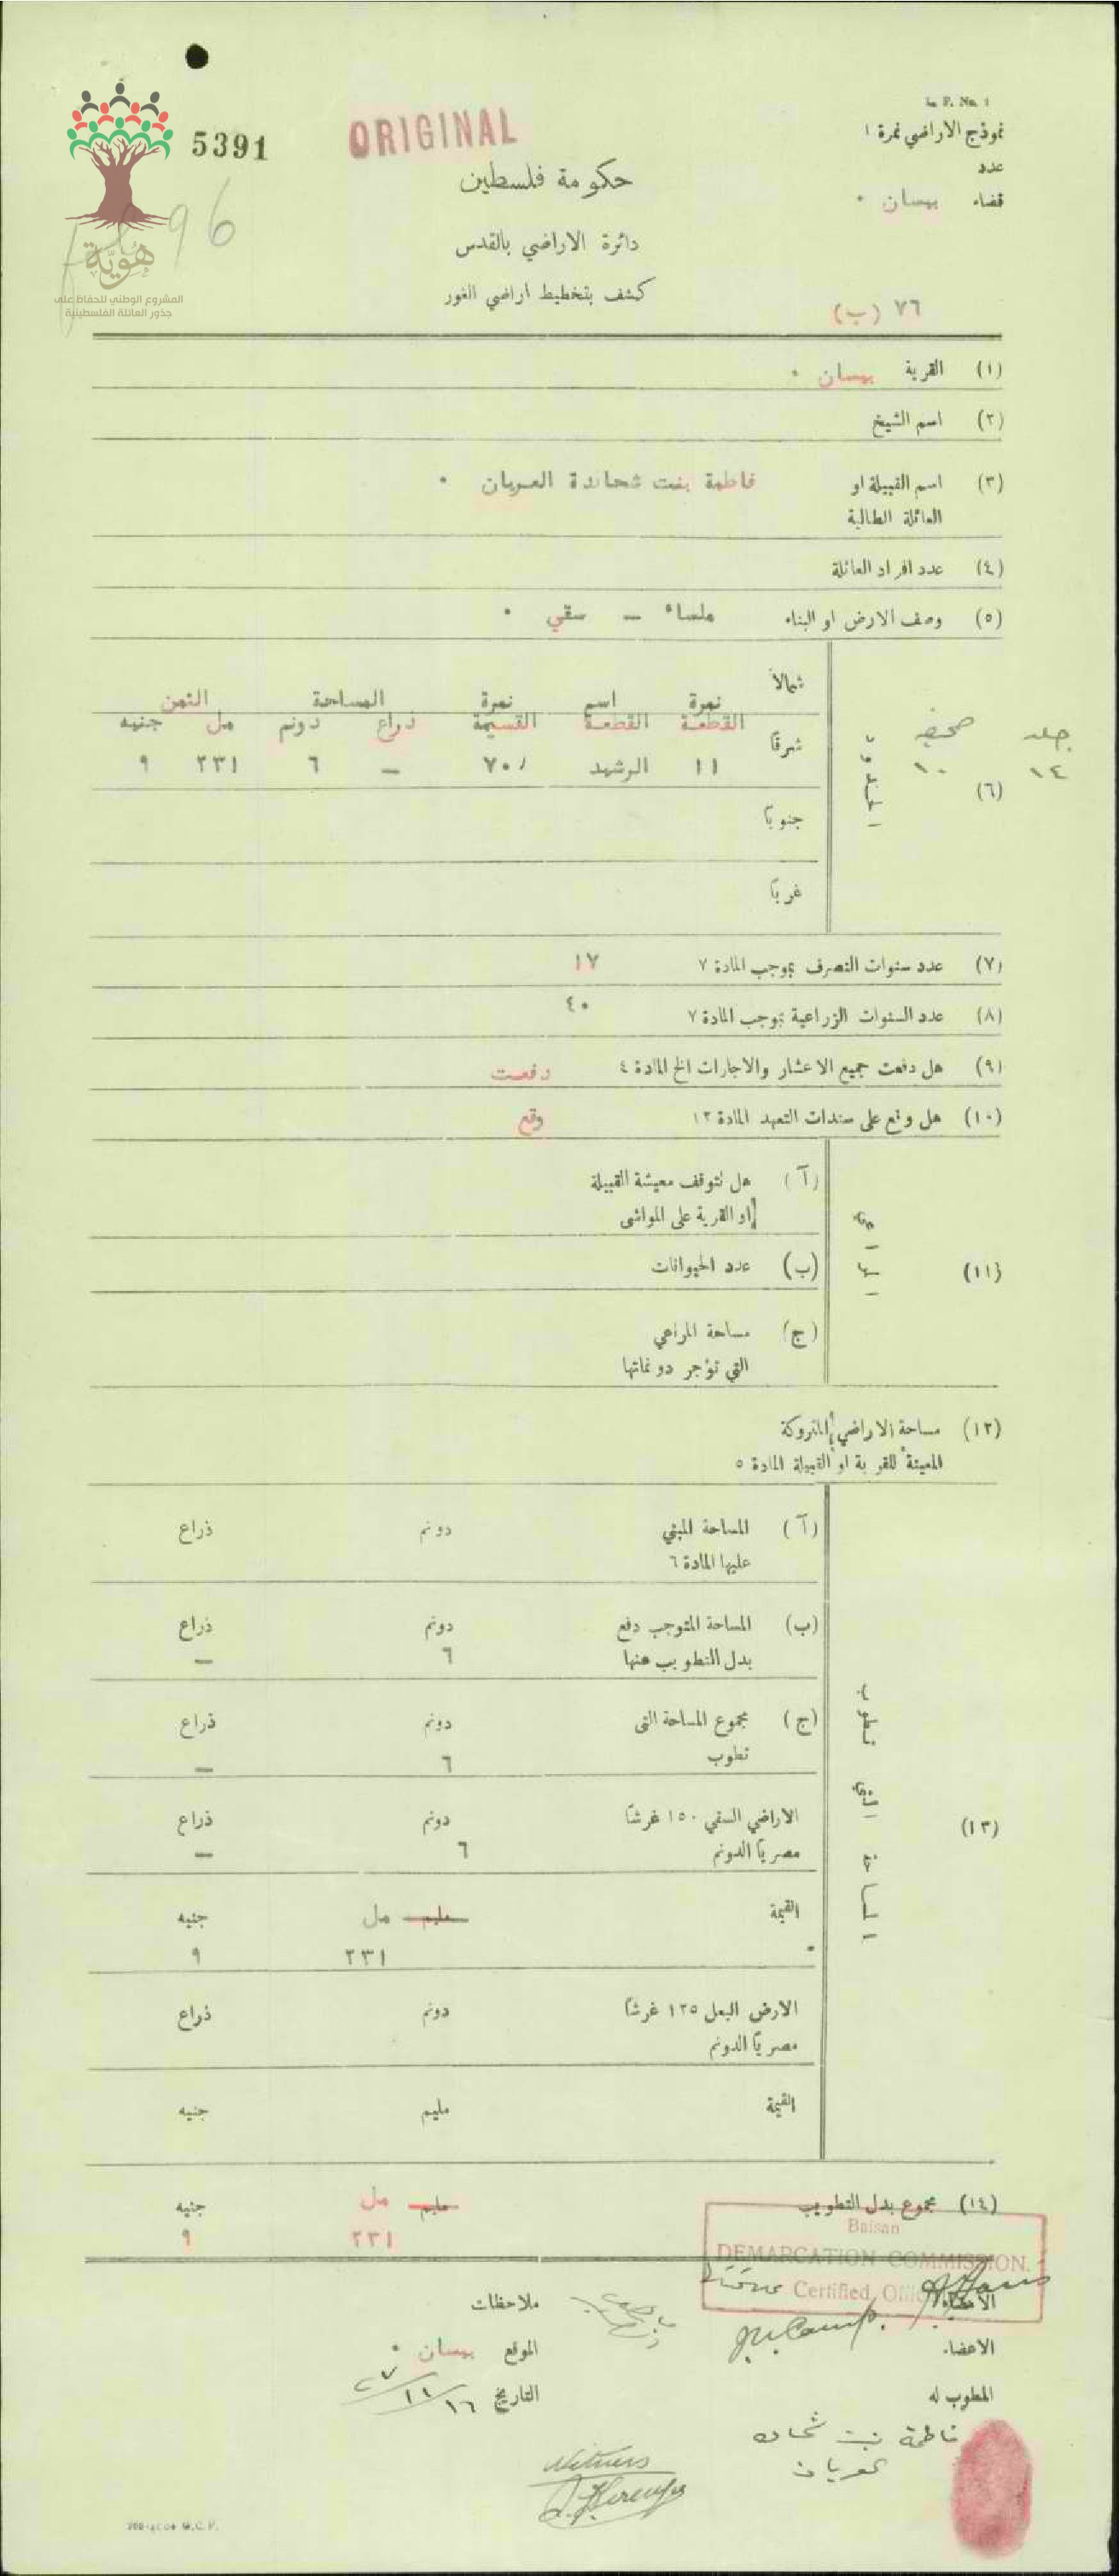 L. F. No. 1
نموذج الاراضي نمرة ١
عدد
قضاء بيسان .
5391
ORIGINAL
96
هُويّة
المشروع الوطني للحفاظ على
جذور العائلة الفلسطينية
حكومة فلسطين
دائرة الاراضي بالقدس
كشف بتخطيط اراضي الغور
٧٦ (ب)
(١) القرية بيسان .
(٢) اسم الشيخ
(٣) اسم القبيلة او فاطمة بنت شحادة العريان .
العائلة الطالبة
(٤) عدد افراد العائلة
(٥) وصف الارض او البناء ملساء — سقي .
جلد صحيفه
١٤ ١٠
(٦) الحدود
شمالاً
نمرة اسم نمرة المساحة الثمن
القطعة القطعة القسيمة ذراع دونم مل جنيه
شرقاً
١١ الرشيد ٧٠ — ٦ ٢٣١ ٩
جنوباً
غرباً
(٧) عدد سنوات التصرف بموجب المادة ٧ ١٧
(٨) عدد السنوات الزراعية بموجب المادة ٧ ٤٠
(٩) هل دفعت جميع الاعشار والاجارات الخ المادة ٤ دفعت
(١٠) هل وقع على سندات التعهد المادة ١٣ وقع
(١١) المراعي
(آ) هل تتوقف معيشة القبيلة
او القرية على المواشي
(ب) عدد الحيوانات
(ج) مساحة المراعي
التي تؤجر دونماتها
(١٢) مساحة الاراضي المتروكة
المعينة للقرية او القبيلة المادة ٥
(١٣) المساحة التي تطوب
(آ) المساحة المبني دونم ذراع
عليها المادة ٦
(ب) المساحة المتوجب دفع دونم ذراع
بدل التطويب عنها ٦ —
(ج) مجموع المساحة التي دونم ذراع
تطوب ٦ —
الاراضي السقي ١٥٠ غرشاً دونم ذراع
مصرياً الدونم ٦ —
القيمة مليم مل جنيه
٢٣١ ٩
الارض البعل ١٢٥ غرشاً دونم ذراع
مصرياً الدونم
القيمة مليم جنيه
(١٤) مجموع بدل التطويب مليم مل جنيه
٢٣١ ٩
Baisan
DEMARCATION COMMISSION.
Certified
الاعضاء
ملاحظات
الاعضاء
الموقع بيسان .
المطوب له
التاريخ ١٦/١١/٢٧
فاطمة بنت شحاده
عريان
Witness